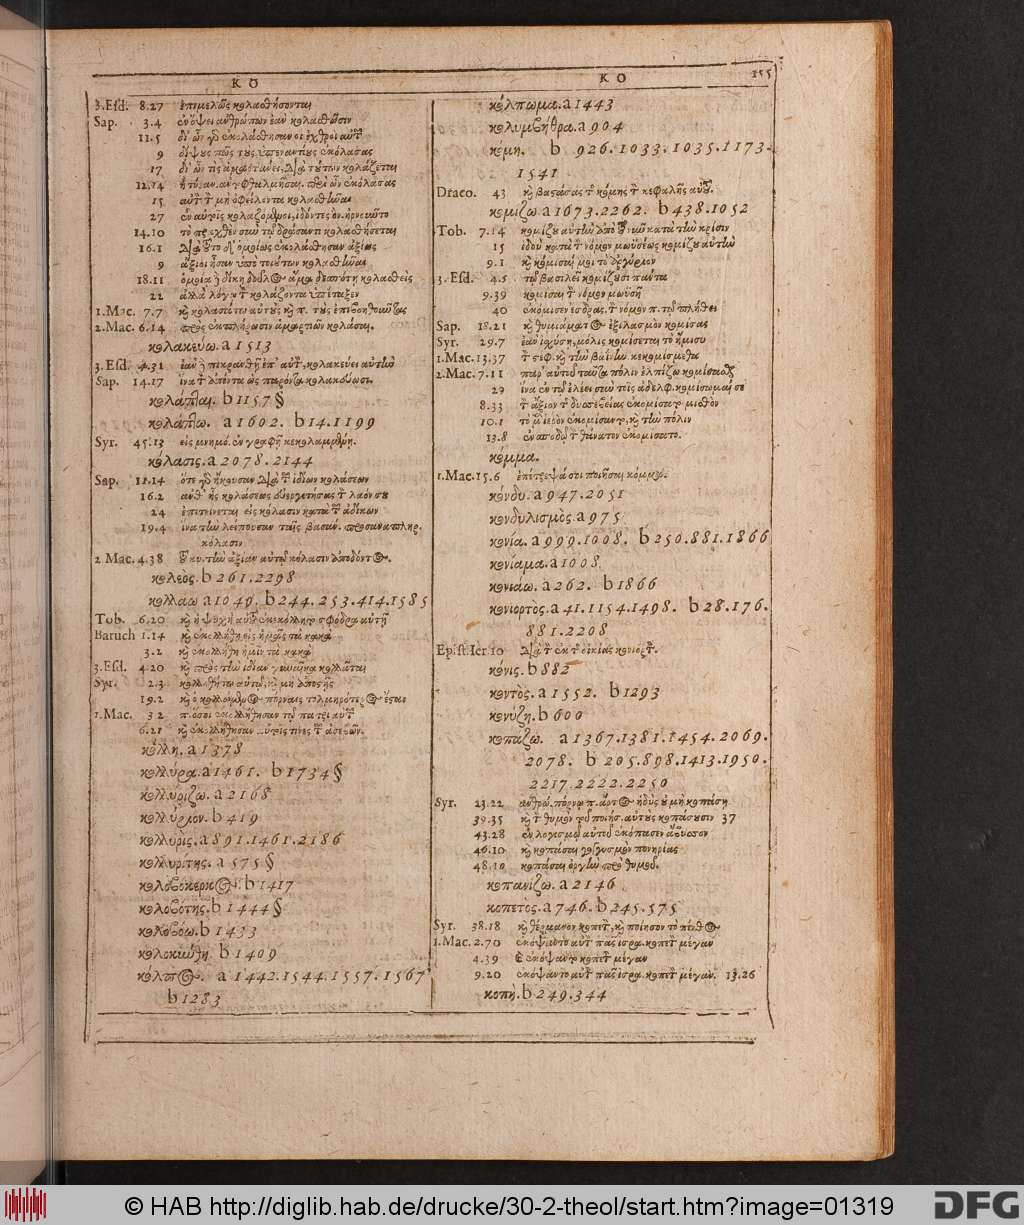 ΚΟ
ΚΟ 155
3.Esd. 8.27 ἐπιμελῶς κολασθήσονται
Sap. 3.4 ἐν ὄψει ἀνθρώπων ἐὰν κολασθῶσιν
11.5 δι' ὧν γὸ ἐκολάσθησαν οἱ ἐχθροὶ αὐτῶν
9 δίψους πῶς τοὺς ὑπεναντίους ἐκόλασας
17 δι' ὧν τις ἁμαρτάνει, διὰ τούτων κολάζεται
12.14 ὧν ἐκόλασας
15 αὐτὸν τὸν μὴ ὀφείλοντα κολασθῆναι
27 ἐν αὐτοῖς κολαζόμενοι, ἰδόντες ὃν ἠρνοῦντο
14.10 τὸ πραχθὲν σὺν τῷ δράσαντι κολασθήσεται
16.1 διὰ τοῦτο δι' ὁμοίων ἐκολάσθησαν ἀξίως
9 ἄξιοι ἦσαν ὑπὸ τοιούτων κολασθῆναι
18.11 ὁμοίᾳ δίκῃ δοῦλος ἅμα δεσπότῃ κολασθεὶς
22 ἀλλὰ λόγῳ τὸν κολάζοντα ὑπέταξεν
1.Mac. 7.7 κολασάτω αὐτοὺς
2.Mac. 6.14 πρὸς ἐκπλήρωσιν ἁμαρτιῶν κολάσαι.
κολακεύω. a 1513
3.Esd. 4.31 ἐὰν πικρανθῇ ἐπ' αὐτ, κολακεύει αὐτὴν
Sap. 14.17 ἵνα τὸν ἀπόντα ὡς παρόντα κολακεύωσι.
κολάπται. b 1157 §
κολάπτω. a 1602. b 14.1199
Syr. 45.13 ἐν γραφῇ κεκολαμμένῃ.
κόλασις. a 2078. 2144
Sap. 11.14 ὅτε γὸ ἤκουσαν διὰ τῶν ἰδίων κολάσεων
16.2 ἀνθ' ἧς κολάσεως εὐεργετήσας τὸν λαόν σου
24 ἐπιτείνεται εἰς κόλασιν κατὰ τῶν ἀδίκων
19.4 ἵνα τὴν λείπουσαν ταῖς βασάν. προσαναπληρ.
κόλασιν
2.Mac. 4.38 τὴν ἀξίαν αὐτῷ κόλασιν ἀποδόντος.
κολεὸς. b 261. 2298
κολλάω a 1049. b 244. 253. 414. 1585
Tob. 6.20 κ ἡ ψυχὴ αὐτοῦ ἐκολλήθη σφόδρα αὐτῇ
Baruch 1.14 κ ἐκολλήθη εἰς ἡμᾶς τὰ κακὰ
3.2 κ ἐκολλήθη ἡμῖν τὰ κακὰ
3.Esd. 4.20 κ πρὸς τὴν ἰδίαν γυναῖκα κολλᾶται
Syr. 2.3 κολλήθητι αὐτῷ, κ μὴ ἀποστῇς
19.2 κ ὁ κολλώμενος πόρναις τολμηρότερος ἔσται
1.Mac. 3 2 π. ὅσοι ἐκολλήθησαν τῷ πατρὶ αὐτοῦ
6.21 κ ἐκολλήθησαν αὐτοῖς τινες τῶν ἀσεβῶν.
κόλλη. a 1378
κολλύρα. a 1461. b 1734 §
κολλυρίζω. a 2168
κολλύριον. b 419
κολλυρὶς. a 891. 1461. 2186
κολλυρίτης. a 575 §
κολοβόκερκος. b 1417
κολοβότης. b 1444 §
κολοβόω. b 1433
κολοκύνθη b 1409
κόλπος. a 1442. 1544. 1557. 1567
b 1283
κόλπωμα. a 1443
κολυμβήθρα. a 904
κόμη. b 926. 1033. 1035. 1173.
1541
Draco. 43 κ βαστάσας τῆς κόμης τῆς κεφαλῆς αὐτοῦ.
κομίζω. a 1673. 2262. b 438. 1052
Tob. 7.14 κομίζου αὐτὴν ἀπὸ τοῦ νῦν κατὰ τὴν κρίσιν
15 ἰδοὺ κατὰ τὸν νόμον μωϋσέως κομίζου αὐτὴν
9.1 κ κόμισαί μοι τὸ ἀργύριον
3.Esd. 4.5 τῷ βασιλεῖ κομίζουσι πάντα
9.39 κομίσαι τὸν νόμον μωϋσῆ
40 ἐκόμισεν ἔσδρας τὸν νόμον π. τῷ πλήθει
Sap. 18.21 κ θυμιάματος ἐξιλασμὸν κομίσας
Syr. 29.7 ἐὰν ἰσχύσῃ, μόλις κομίσεται τὸ ἥμισυ
1.Mac. 13.37 κεκομίσμεθα
2.Mac. 7.11 παρ' αὐτοῦ ταῦτα πάλιν ἐλπίζω κομίσασθ
29 ἵνα ἐν τῷ ἐλέει σὺν τοῖς ἀδελφ. κομίσωμαί σε
8.33 τὸν ἄξιον τῆς δυσσεβείας ἐκομίσατο μισθὸν
10.1 τὸ ἱερὸν ἐκομίσαντο, κ τὴν πόλιν
13.8 ἐν σποδῷ τὸν θάνατον ἐκομίσατο.
κόμμα.
1.Mac. 15.6 ἐπέτρεψά σοι ποιῆσαι κόμμα.
κόνδυ. a 947. 2051
κονδυλισμὸς. a 975
κονία. a 999. 1008. b 250. 881. 1866
κονίαμα. a 1008
κονιάω. a 262. b 1866
κονιορτὸς. a 41. 1154. 1498. b 28. 176.
881. 2208
Epist. Ier. 10 διὰ τὸν ἐκ τῆς οἰκίας κονιορτ.
κόνις. b 882
κοντὸς. a 1552. b 1293
κονύζη. b 600
κοπάζω. a 1367. 1381. 1454. 2069.
2078. b 205. 898. 1413. 1950.
2217. 2222. 2250
Syr. 23.22 ἀνθρώ. πόρνῳ π. ἄρτος ἡδὺς οὐ μὴ κοπάσῃ
39.35 κ τὸν θυμὸν τοῦ ποιήσ. αὐτοὺς κοπάσουσιν 37
43.28 ἐν λογισμῷ αὐτοῦ ἐκόπασεν ἄβυσσον
46.10 κ κοπάσαι γογγυσμὸν πονηρίας
48.10 κοπάσαι ὀργὴν πρὸ θυμοῦ.
κοπανίζω. a 2146
κοπετὸς. a 746. b 245. 575
Syr. 38.18 κ θέρμανον κοπετ, κ ποίησον τὸ πένθος
1.Mac. 2.70 ἐκόψαντο αὐτ πᾶς ἰσρα. κοπετ μέγαν
4.39 ἐκόψαντο κοπετ μέγαν
9.20 ἐκόψαντο αὐτ πᾶς ἰσρα. κοπετ μέγαν. 13.26
κοπὴ. b 249. 344
© HAB http://diglib.hab.de/drucke/30-2-theol/start.htm?image=01319
DFG